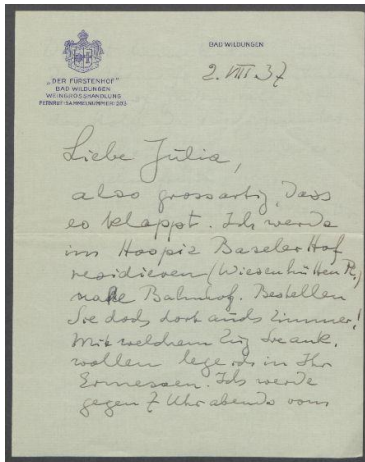 „DER FÜRSTENHOF"
BAD WILDUNGEN
WEINGROSSHANDLUNG
FERNRUF-SAMMELNUMMER: 203
BAD WILDUNGEN
2. VIII. 37
Liebe Julia,
also grossartig, dass
es klappt. Ich werde
im Hospiz Baseler Hof
residieren (Wiesenhütten Pl.)
nahe Bahnhof. Bestellen
Sie doch dort auch Zimmer!
Mit welchem Zug Sie ank.
wollen lege ich in Ihr
Ermessen. Ich werde
gegen 7 Uhr abends vom